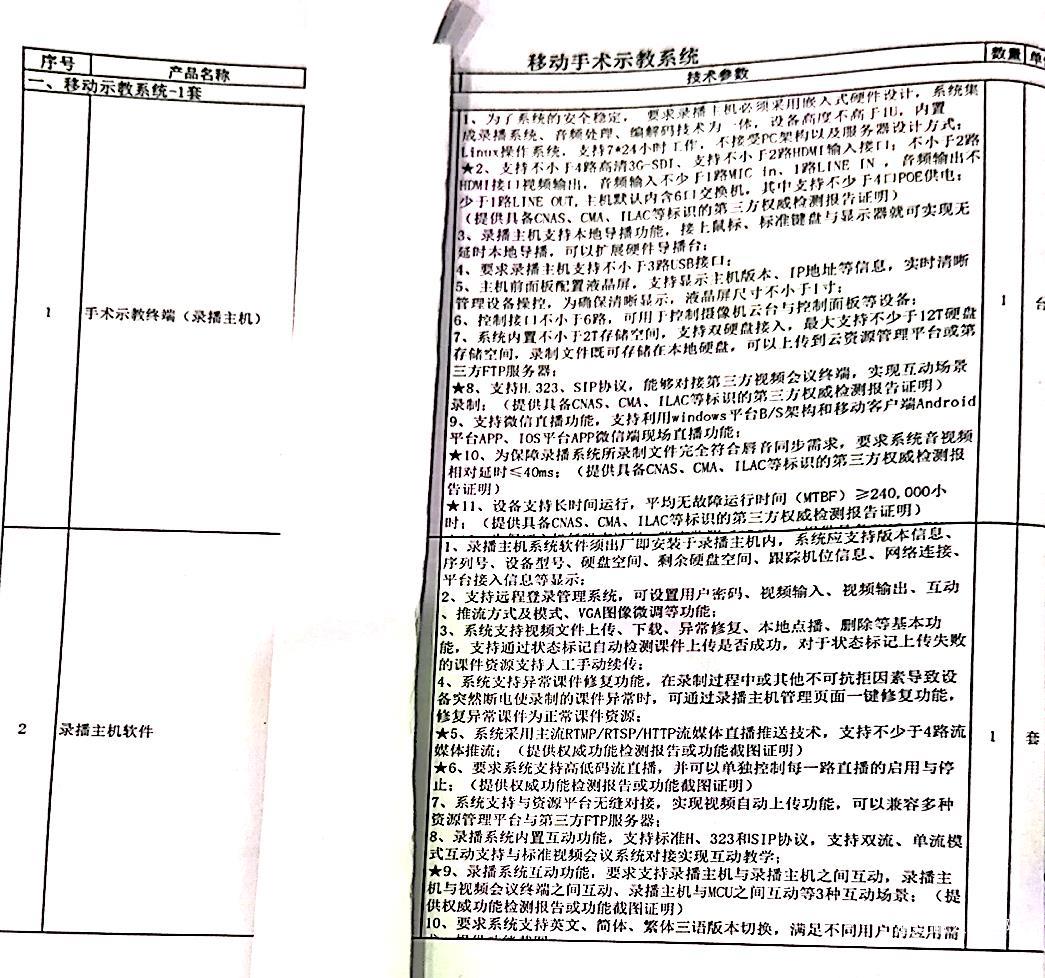 移动手术示教系统
序号 产品名称 技术参数 数量
一、移动示教系统-1套
1 手术示教终端（录播主机） 1 台
1、为了系统的安全稳定， 要求录播主机必须采用嵌入式硬件设计，系统集
成录播系统、音频处理、编解码技术为一体，设备高度不高于1U，内置
Linux操作系统，支持7*24小时工作，不接受PC架构以及服务器设计方式；
★2、支持不小于4路高清3G-SDI、支持不小于2路HDMI输入接口；不小于2路
HDMI接口视频输出，音频输入不少于1路MIC in、1路LINE IN ，音频输出不
少于1路LINE OUT,主机默认内含6口交换机，其中支持不少于4口POE供电；
（提供具备CNAS、CMA、ILAC等标识的第三方权威检测报告证明）
3、录播主机支持本地导播功能，接上鼠标、标准键盘与显示器就可实现无
延时本地导播，可以扩展硬件导播台；
4、要求录播主机支持不小于3路USB接口；
5、主机前面板配置液晶屏，支持显示主机版本、IP地址等信息，实时清晰
管理设备操控，为确保清晰显示，液晶屏尺寸不小于1寸；
6、控制接口不小于6路，可用于控制摄像机云台与控制面板等设备；
7、系统内置不小于2T存储空间，支持双硬盘接入，最大支持不少于12T硬盘
存储空间，录制文件既可存储在本地硬盘，可以上传到云资源管理平台或第
三方FTP服务器；
★8、支持H.323、SIP协议，能够对接第三方视频会议终端，实现互动场景
录制；（提供具备CNAS、CMA、ILAC等标识的第三方权威检测报告证明）
9、支持微信直播功能，支持利用windows平台B/S架构和移动客户端Android
平台APP、IOS平台APP微信端现场直播功能；
★10、为保障录播系统所录制文件完全符合唇音同步需求，要求系统音视频
相对延时≤40ms；（提供具备CNAS、CMA、ILAC等标识的第三方权威检测报
告证明）
★11、设备支持长时间运行，平均无故障运行时间（MTBF）≥240,000小
时；（提供具备CNAS、CMA、ILAC等标识的第三方权威检测报告证明）
2 录播主机软件 1 套
1、录播主机系统软件须出厂即安装于录播主机内，系统应支持版本信息、
序列号、设备型号、硬盘空间、剩余硬盘空间、跟踪机位信息、网络连接、
平台接入信息等显示；
2、支持远程登录管理系统，可设置用户密码、视频输入、视频输出、互动
、推流方式及模式、VGA图像微调等功能；
3、系统支持视频文件上传、下载、异常修复、本地点播、删除等基本功
能，支持通过状态标记自动检测课件上传是否成功，对于状态标记上传失败
的课件资源支持人工手动续传；
4、系统支持异常课件修复功能，在录制过程中或其他不可抗拒因素导致设
备突然断电使录制的课件异常时，可通过录播主机管理页面一键修复功能，
修复异常课件为正常课件资源；
★5、系统采用主流RTMP/RTSP/HTTP流媒体直播推送技术，支持不少于4路流
媒体推流；（提供权威功能检测报告或功能截图证明）
★6、要求系统支持高低码流直播，并可以单独控制每一路直播的启用与停
止；（提供权威功能检测报告或功能截图证明）
7、系统支持与资源平台无缝对接，实现视频自动上传功能，可以兼容多种
资源管理平台与第三方FTP服务器；
8、录播系统内置互动功能，支持标准H、323和SIP协议，支持双流、单流模
式互动支持与标准视频会议系统对接实现互动教学；
★9、录播系统互动功能，要求支持录播主机与录播主机之间互动，录播主
机与视频会议终端之间互动、录播主机与MCU之间互动等3种互动场景；（提
供权威功能检测报告或功能截图证明）
10、要求系统支持英文、简体、繁体三语版本切换，满足不同用户的应用需